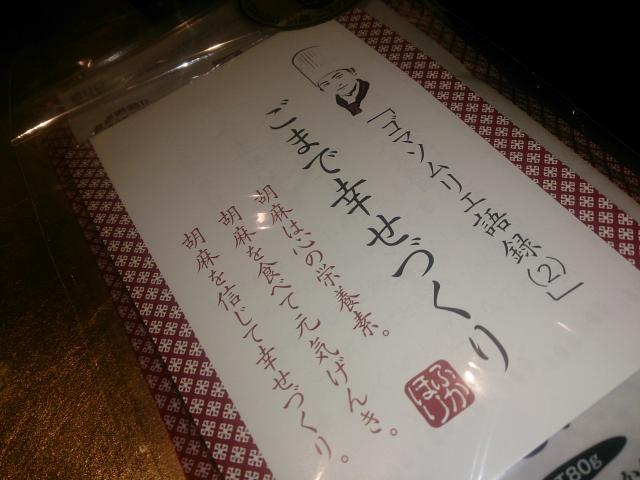 「ゴマソムリエ語録(2)」
ごまで幸せづくり
胡麻は心の栄養素。
胡麻を食べて元気げんき。
胡麻を信じて幸せづくり。
ふか
ほり
80g